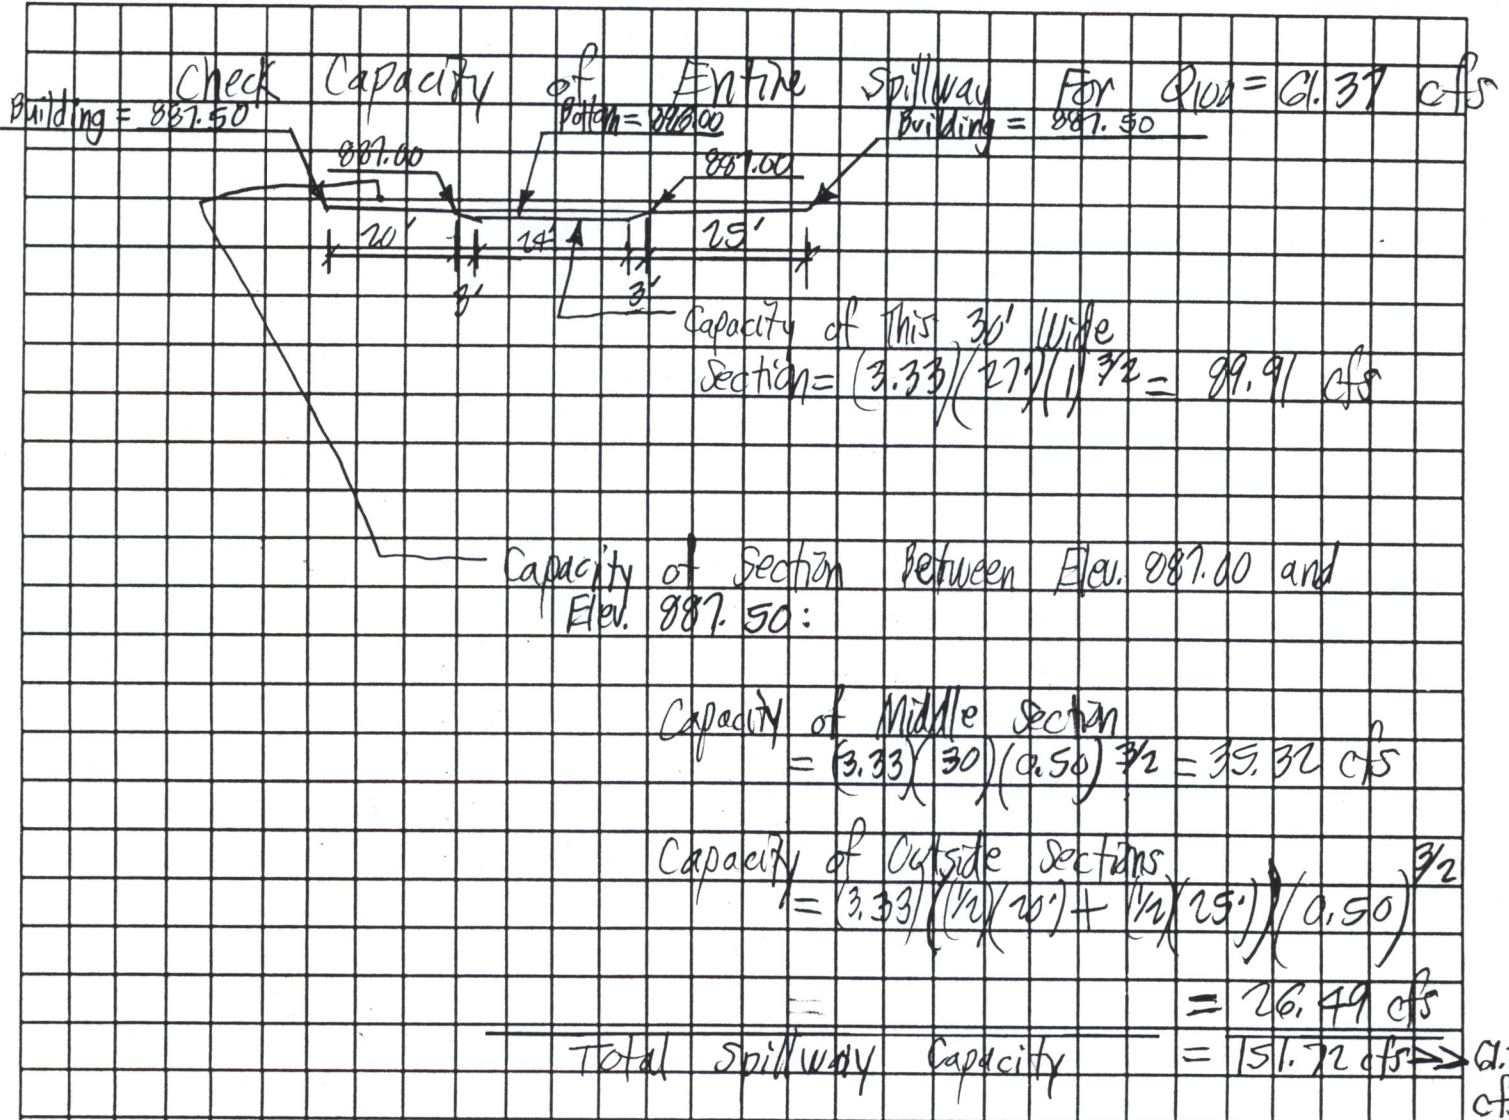 Check Capacity of Entire Spillway For Q100 = 61.37 cfs
Building = 887.50
Bottom = 886.00
Building = 887.50
887.00
887.00
20'
24'
25'
3'
3'
Capacity of This 30' Wide
Section = (3.33)(27')(1)^3/2 = 89.91 cfs
Capacity of Section Between Elev. 887.00 and
Elev. 887.50:
Capacity of Middle Section
= (3.33)(30)(0.50)^3/2 = 35.32 cfs
Capacity of Outside Sections
= (3.33)((1/2)(20') + (1/2)(25'))(0.50)^3/2
=
= 26.49 cfs
Total Spillway Capacity = 151.72 cfs >> 61.
cf